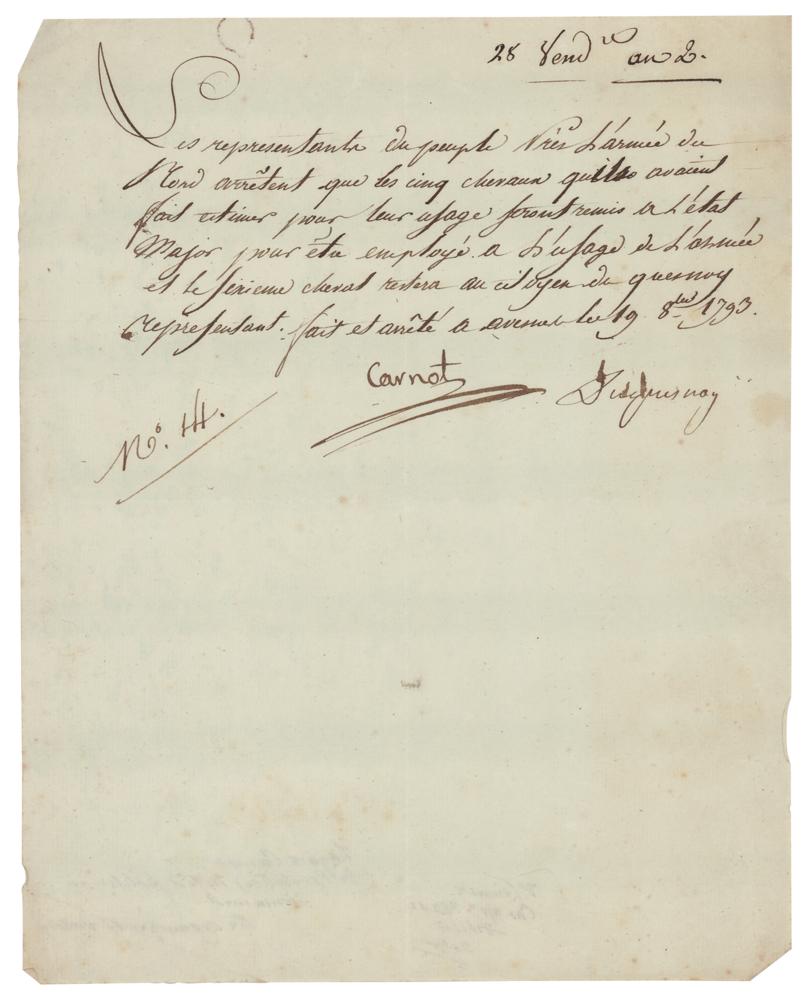 28 Vend^re an 2.
Les representants du peuple Près L'armée du
Nord arrêtent que les cinq chevaux quils avaient
fait estimer pour leur usage seront remis a L'état
Major pour être employé a L'usage de L'armée
et le sixieme cheval restera au citoyen du quesnoy
représentant. fait et arrêté a avesnes le 19 8^bre 1793.
Carnot Duquesnoy
N°. 14.